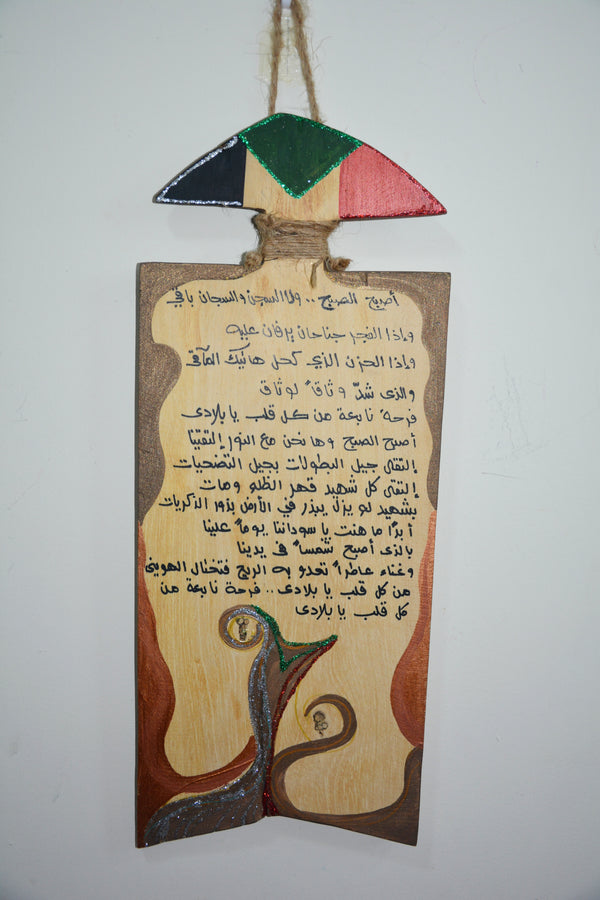 أصبح الصبح .. ولا السجن والسجان باقي
وإذا الفجر جناحان يرفان عليه
وإذا الحزن الذي كحل هاتيك المآقي
والذي شدّ وثاقاً لوثاق
فرحة نابعة من كل قلب يا بلادي
أصبح الصبح وها نحن مع النور إلتقينا
إلتقى جيل البطولات بجيل التضحيات
إلتقى كل شهيد قهر الظلم ومات
بشهيد لم يزل يبذر في الأرض بذور الذكريات
أبدًا ما هنت يا سوداننا يوماً علينا
بالذي أصبح شمساً في يدينا
وغناء عاطراً تعدو به الريح فتختال الهوينى
من كل قلب يا بلادي .. فرحة نابعة من
كل قلب يا بلادي